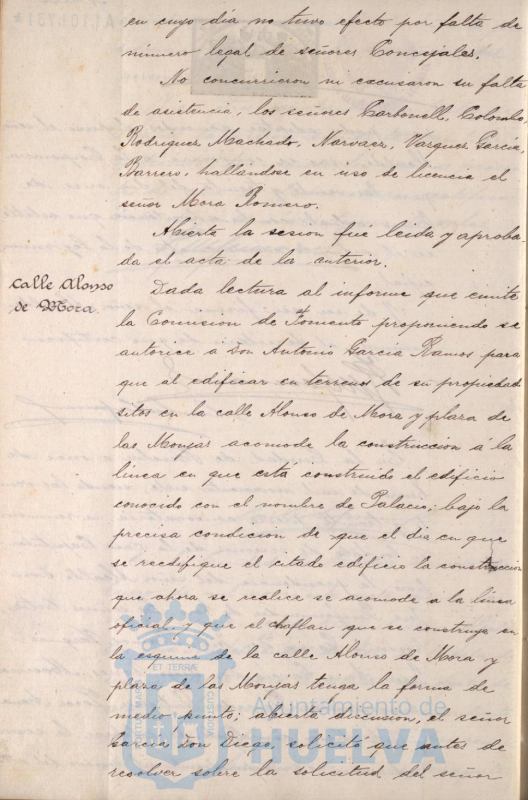 en cuyo dia no tuvo efecto por falta de
número legal de señores Concejales.
No concurrieron ni excusaron su falta
de asistencia, los señores Carbonell, Colombo,
Rodriguez Machado, Narvaez, Vazquez Garcia,
Barrero, hallándose en uso de licencia el
señor Mora Romero.
Abierta la sesion fué leida y aproba-
da el acta de la anterior.
Calle Alonso
de Mora
Dada lectura al informe que emite
la Comision de Fomento proponiendo se
autorice á Don Antonio Garcia Ramos para
que al edificar en terrenos de su propiedad
sitos en la calle Alonso de Mora y plaza de
las Monjas acomode la construccion á la
línea en que está construido el edificio
conocido con el nombre de Palacio; bajo la
precisa condicion de que el dia en que
se reedifique el citado edificio la construccion
que ahora se realice se acomode a la línea
oficial, y que el chaflan que se construya en
la esquina de la calle Alonso de Mora y
plaza de las Monjas tenga la forma de
medio punto; abierta discusion, el señor
Garcia Don Diego, solicitó que antes de
resolver sobre la solicitud del señor
ET TERRÆ
Ayuntamiento de
HUELVA